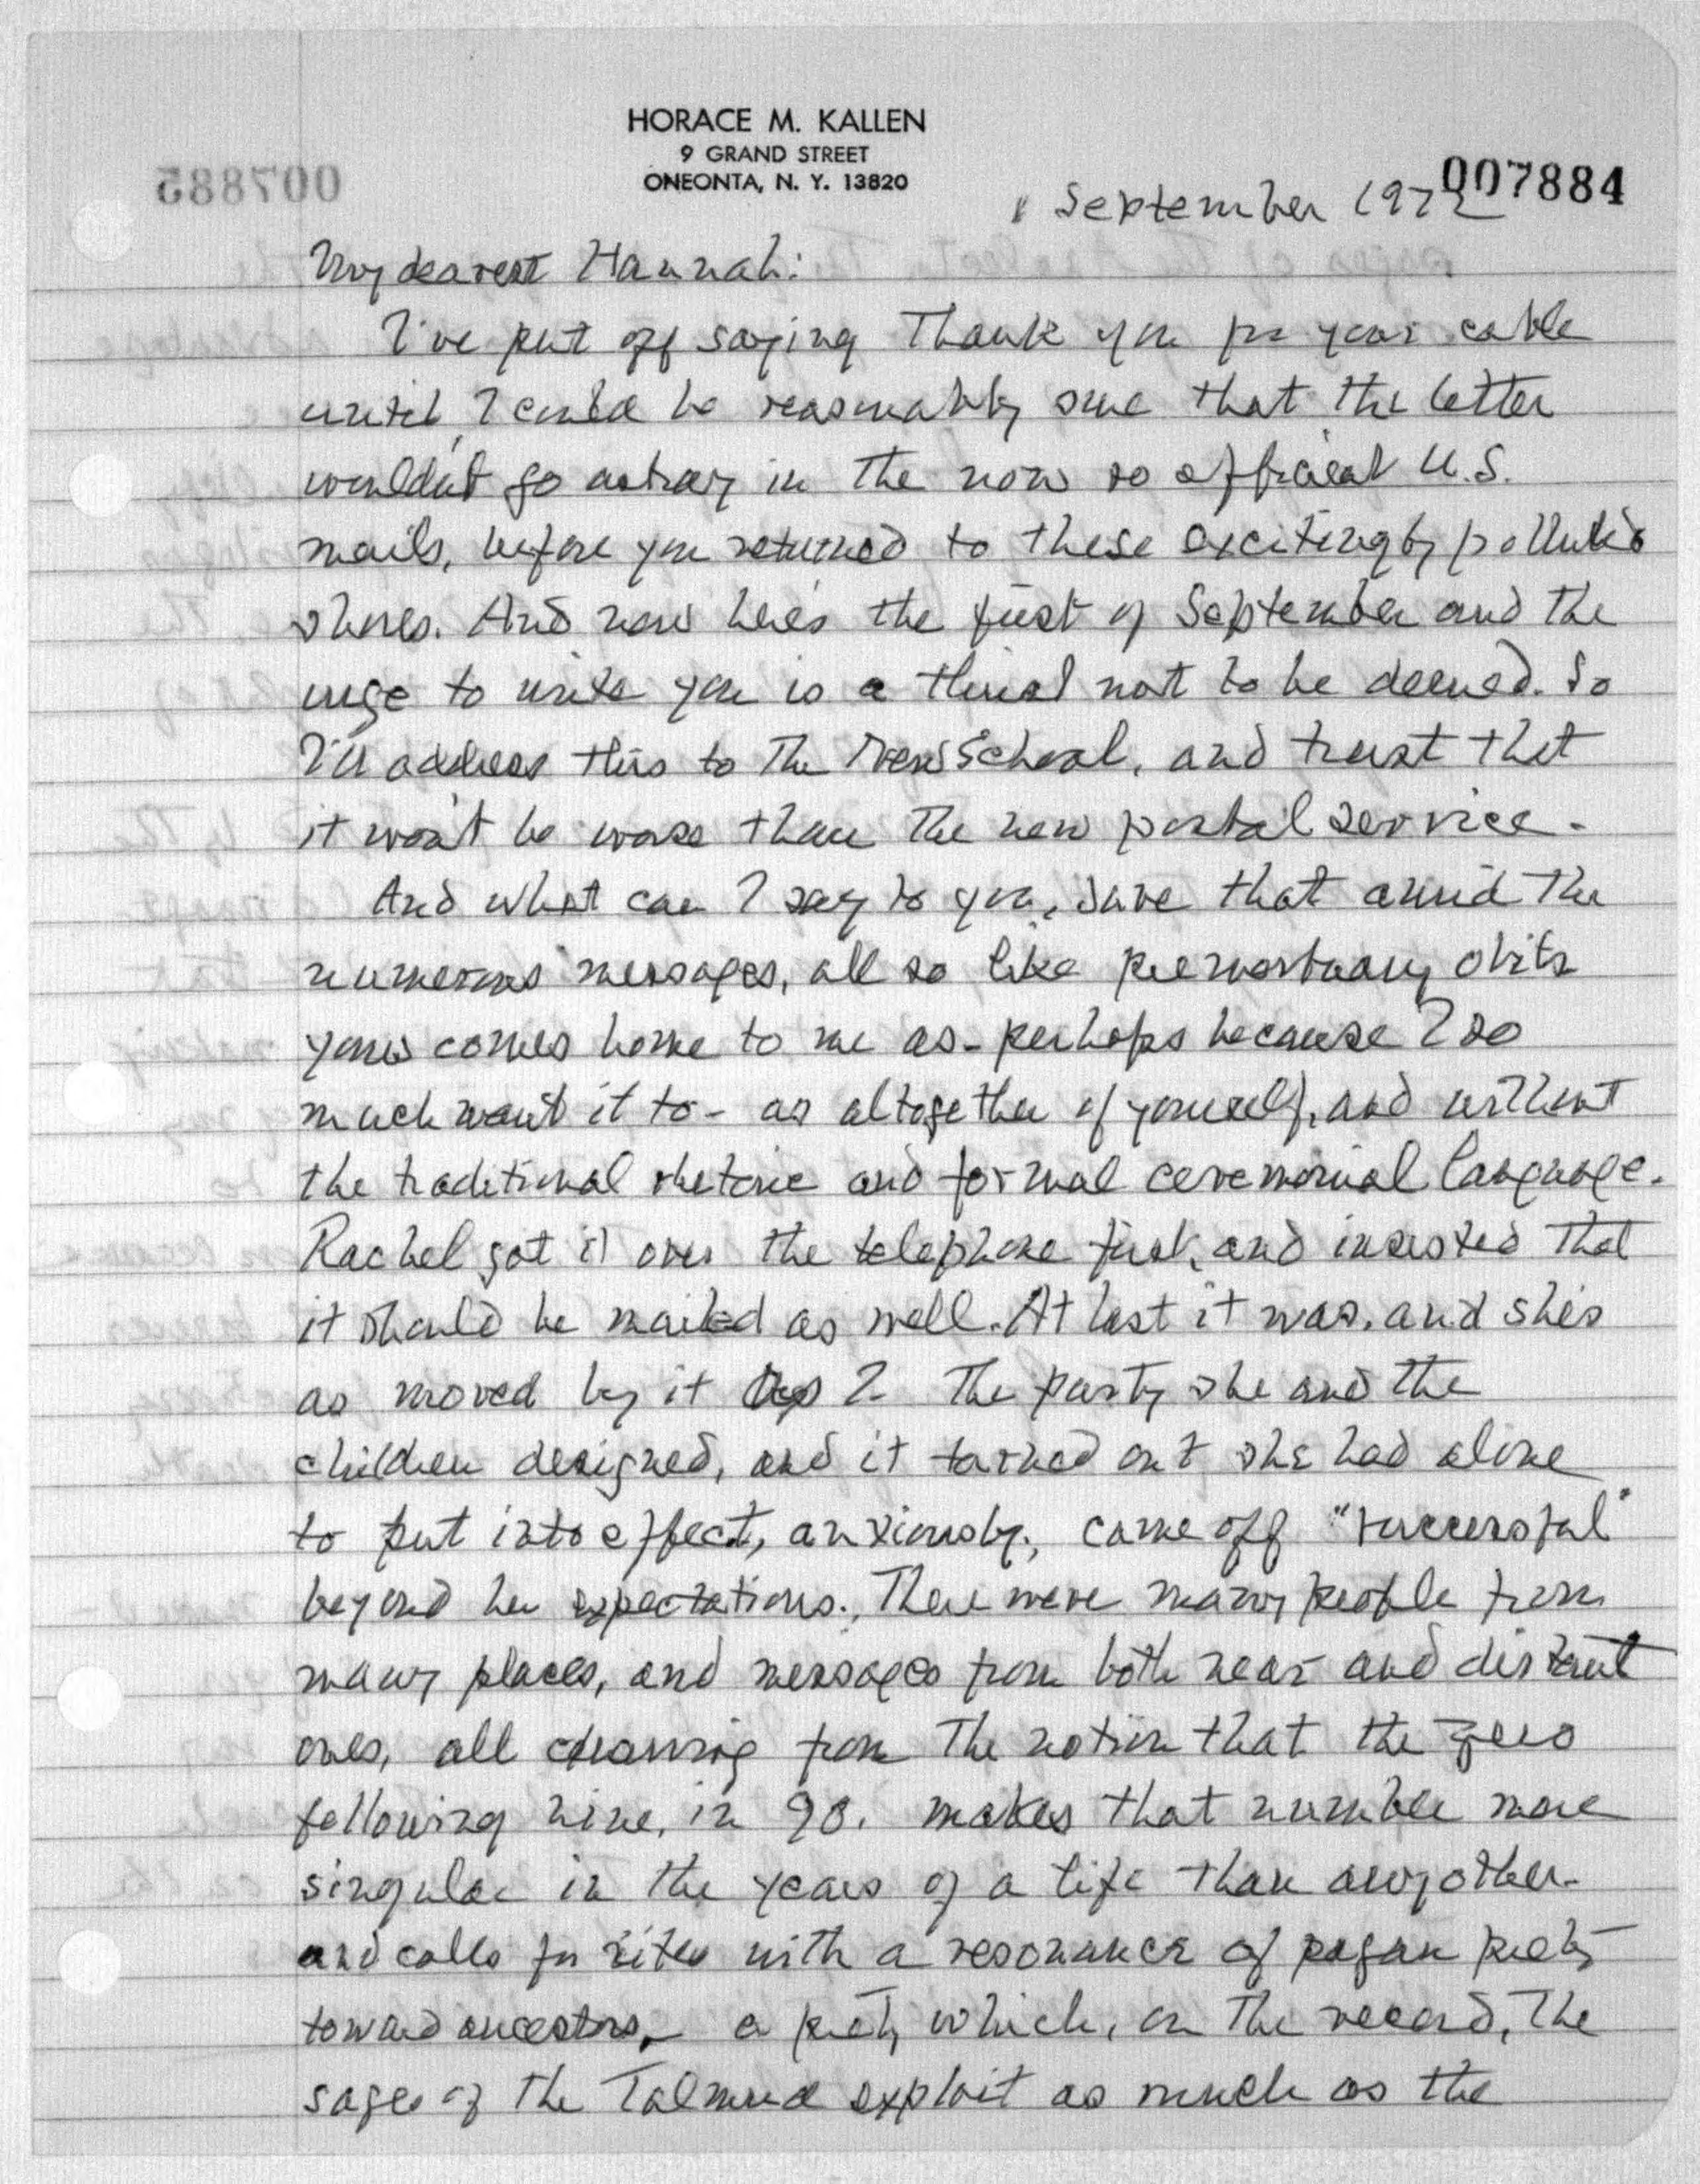 HORACE M. KALLEN
9 GRAND STREET
ONEONTA, N. Y. 13820
007885
007884
1 September 1972
My dearest Hannah:
I've put off saying Thank you for your cable
until I could be reasonably sure that the letter
wouldn't go astray in the now so official U.S.
mails, before you returned to these excitingly polluted
shores. And now here's the first of September and the
urge to write you is a not to be denied. So
I'll address this to The New School, and trust that
it won't be worse than the new postal service.
And what can I say to you, save that amid the
numerous messages, all so like premortuary obits
yours comes home to me as - perhaps because I so
much want it to - as altogether of yourself, and without
the traditional rhetoric and formal ceremonial language.
Rachel got it over the telephone first, and insisted that
it should be mailed as well. At last it was, and she's
as moved by it as I. The party she and the
children designed, and it turned out she had alone
to put into effect, anxiously, came off "successful"
beyond her expectations. There were many people from
many places, and messages from both near and distant
ones, all from the notion that the zero
following nine, in 90, makes that number more
singular in the years of a life than any other
and calls for rites with a resonance of pagan piety
toward ancestors, - a piety which, on the record, the
sages of the Talmud exploit as much as the